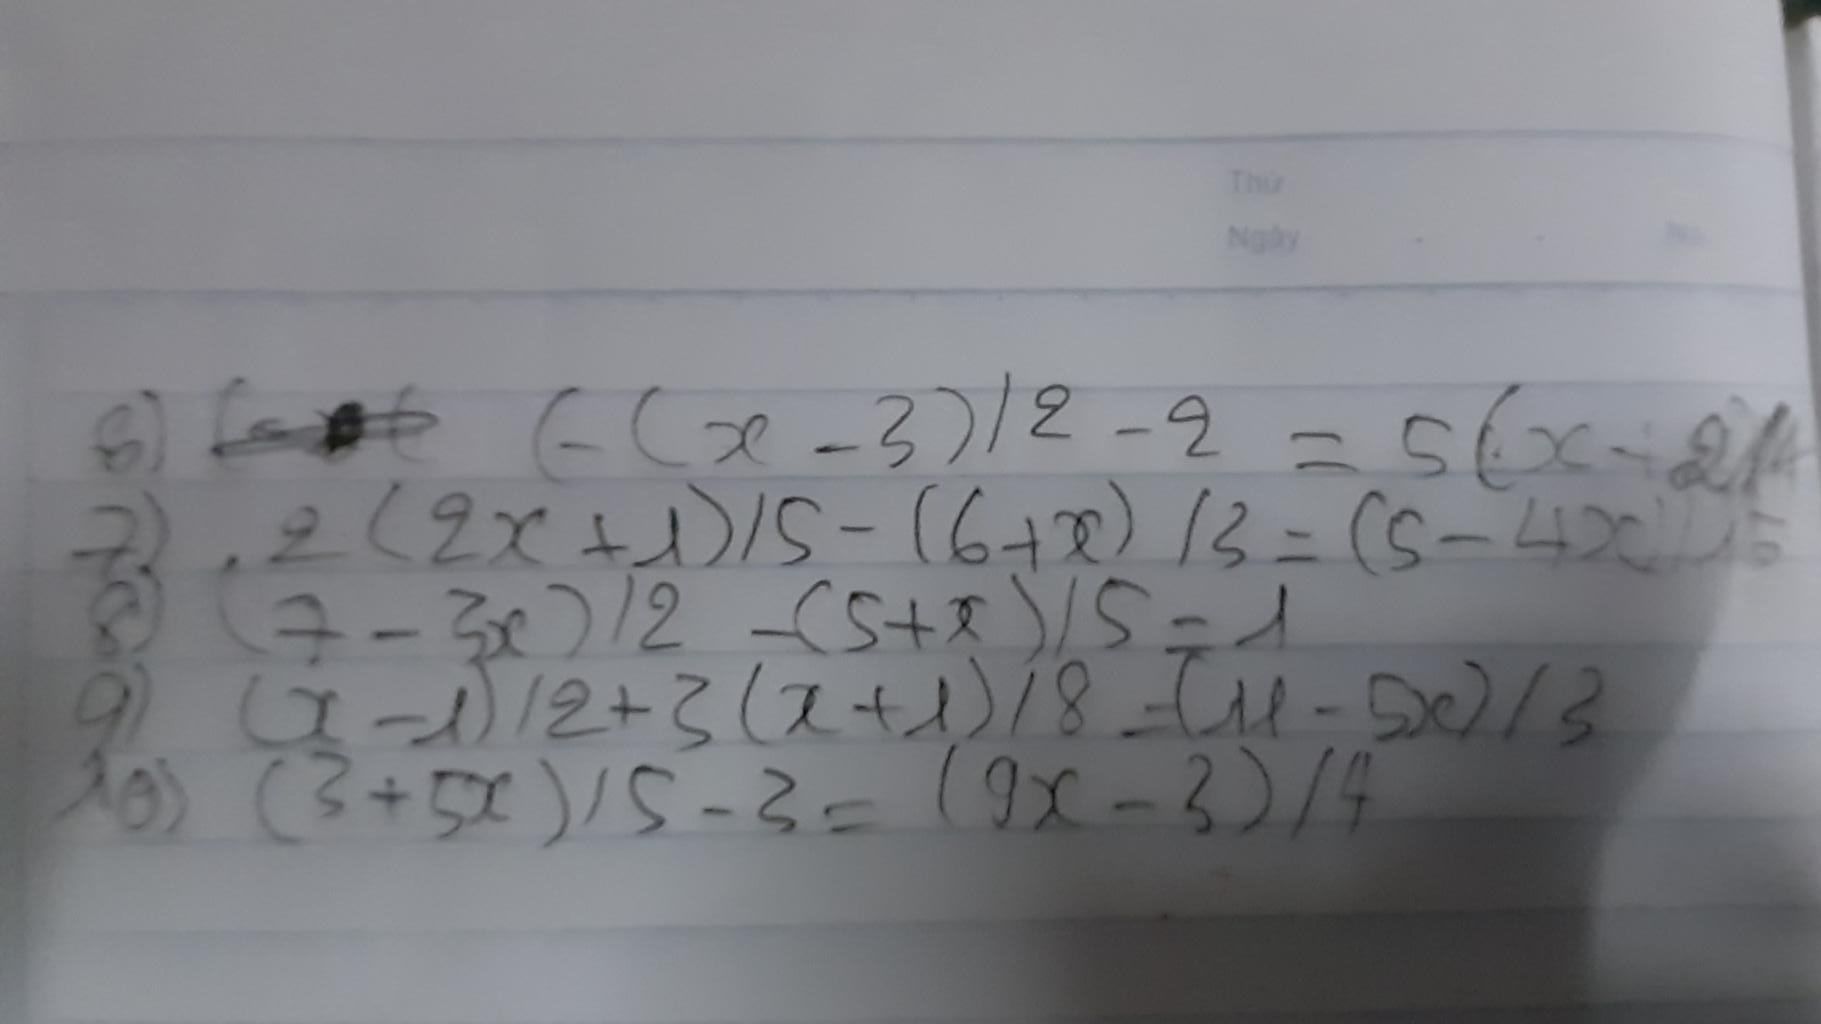 Thứ
Ngày
No.
6) (-(x-3)/2-2 = 5(x+2)/4
7) . 2(2x+1)/5-(6+x)/3=(5-4x)/15
8) (7-3x)/2 -(5+x)/5=1
9) (x-1)/2+3(x+1)/8=(11-5x)/3
10) (3+5x)/5-3=(9x-3)/4